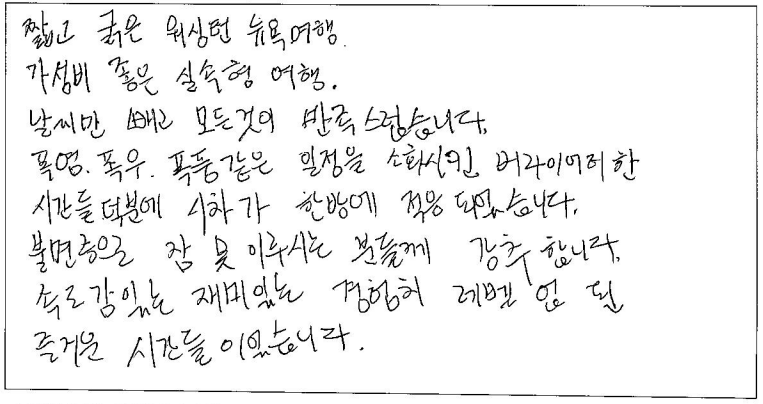 짧고 굵은 워싱턴 뉴욕여행.
가성비 좋은 실속형 여행.
날씨만 빼고 모든것이 만족스럽습니다.
폭염. 폭우. 폭풍같은 일정을 소화시킨 버라이어티한
시간들 덕분에 시차가 한방에 적응 되었습니다.
불면증으로 잠 못 이루시는 분들께 강추 합니다.
속도감있는 재미있는 경험치 레벨 업 된
즐거운 시간들이었습니다.